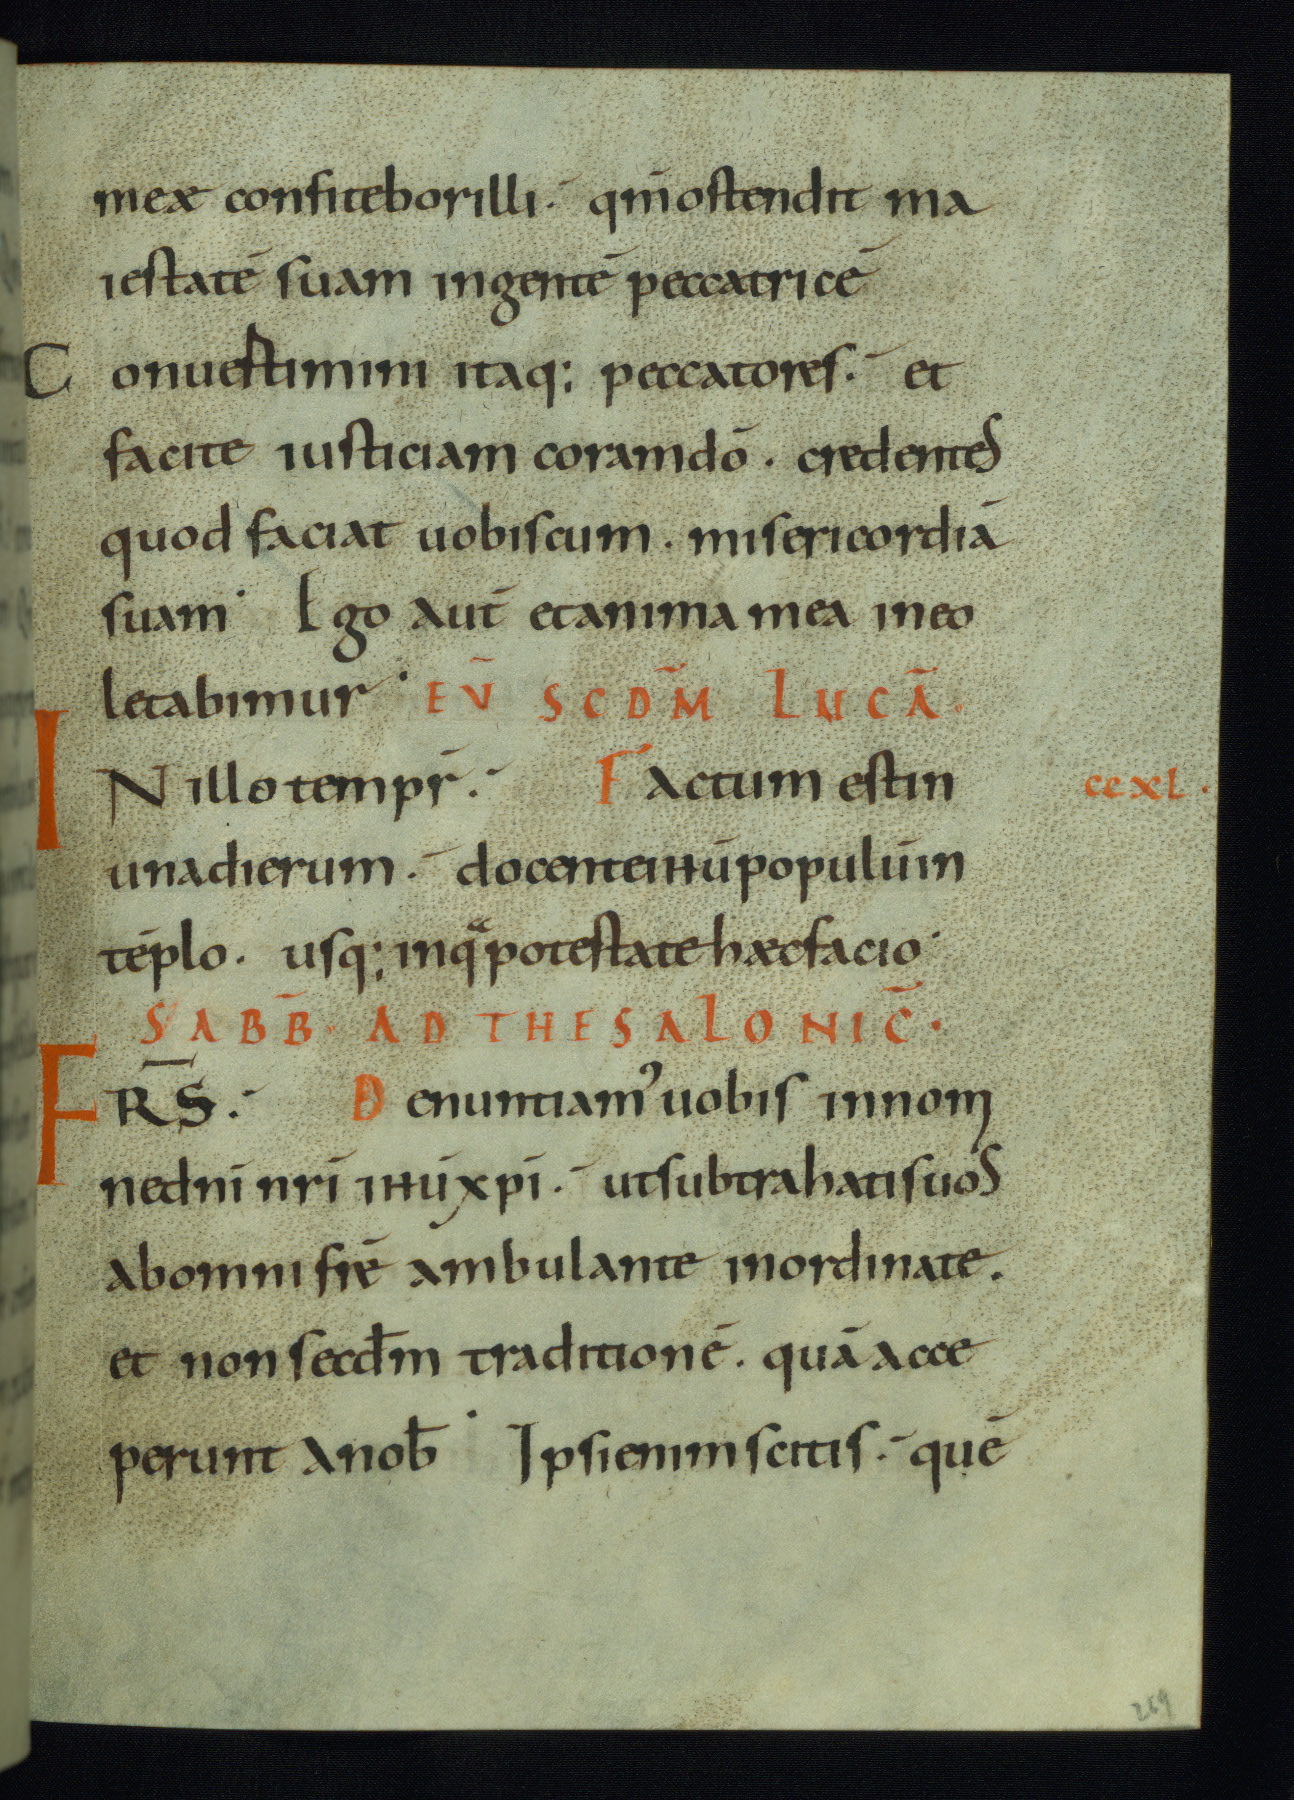 meæ confitebor illi. qm̄ ostendit ma
iestatē suam in gentē peccatricē
Conuestimini itaq; peccatores. et
facite iusticiam coram dō. credentes
quod faciat uobiscum. misericordiā
suam Ego aut̄ et anima mea in eo
letabimur EṼ SCDM̄ LUCĀ.
IN illo tempr̄. Factum est in ccxl.
una dierum. docente ihū populū in
tēplo. usq; in qua potestate hæc facio
SABB̄. AD THESALONIC̄.
FRS̄. Denuntiam' uobis in nom
ne dnī nrī ihū xpī. ut subtrahatis uos
ab omni frē ambulante inordinate.
et non secđm traditionē. quā acce
perunt a nob̄ Ipsi enim scitis. quē
269